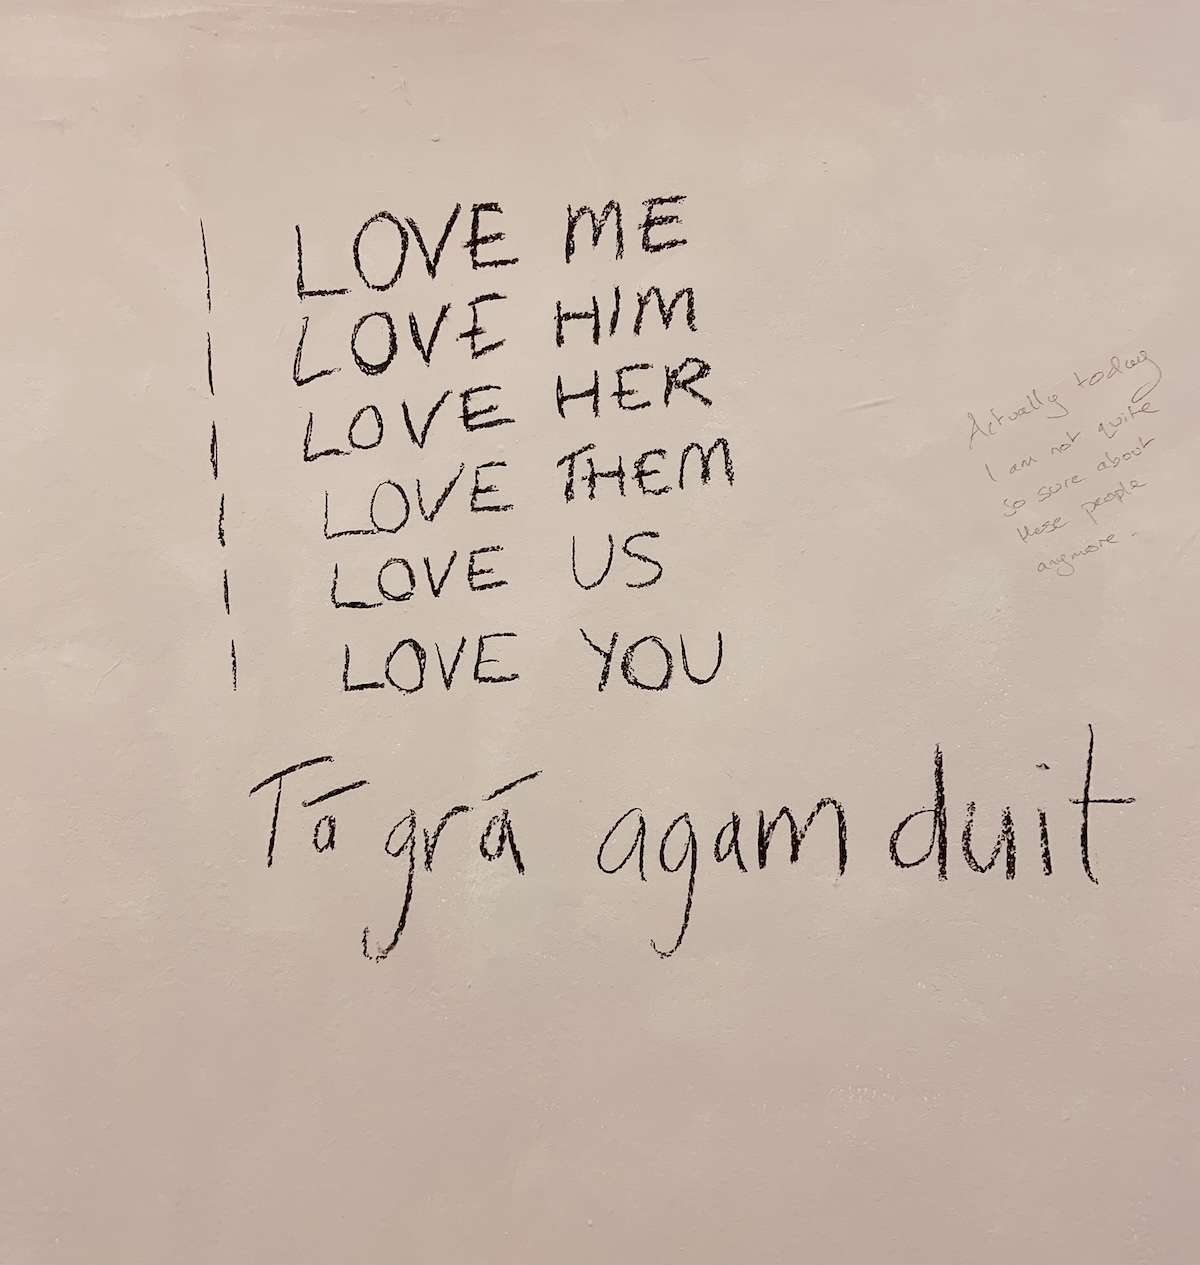 I LOVE ME
I LOVE HIM
I LOVE HER
I LOVE THEM
I LOVE US
I LOVE YOU
Tá grá agam duit
Actually today
I am not quite
so sure about
these people
anymore.